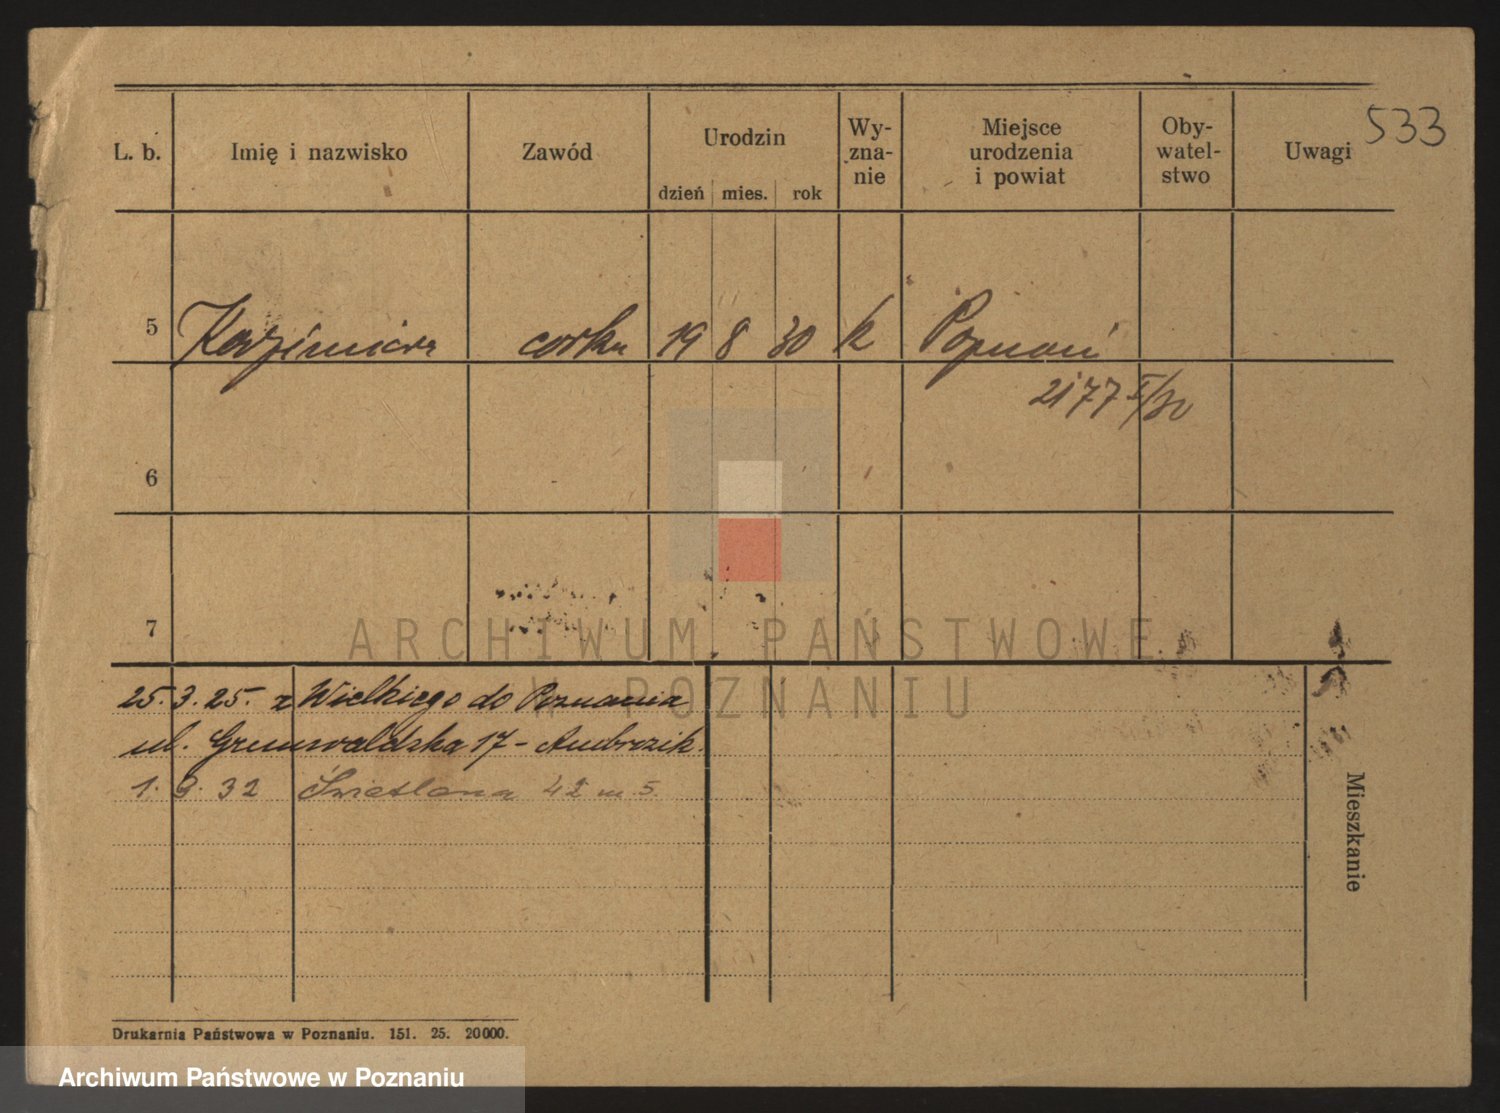 533
L. b. Imię i nazwisko Zawód Urodzin dzień mies. rok Wy-zna-nie Miejsce urodzenia i powiat Oby-watel-stwo Uwagi
5 Kazimiera corka 19 8 30 k Poznań
2177 I/30
6
7
25. 3. 25. z Wielkiego do Poznania
ul. Grunwaldzka 17 - Ambrozik.
1. 9. 32 Świetlana 42 m. 5.
Mieszkanie
Drukarnia Państwowa w Poznaniu. 151. 25. 20000.
ARCHIWUM PAŃSTWOWE
W POZNANIU
Archiwum Państwowe w Poznaniu